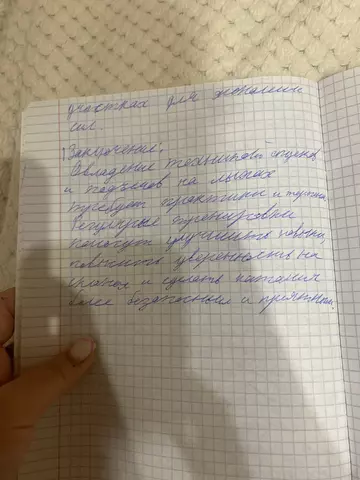 участках для экономии
сил
Заключение:
Овладение техниками спусков
и подъемов на лыжах
требует практики и терпения.
Регулярные тренировки
помогут улучшить навыки,
повысить уверенность на
склонах и сделать катания
более безопасным и приятным.